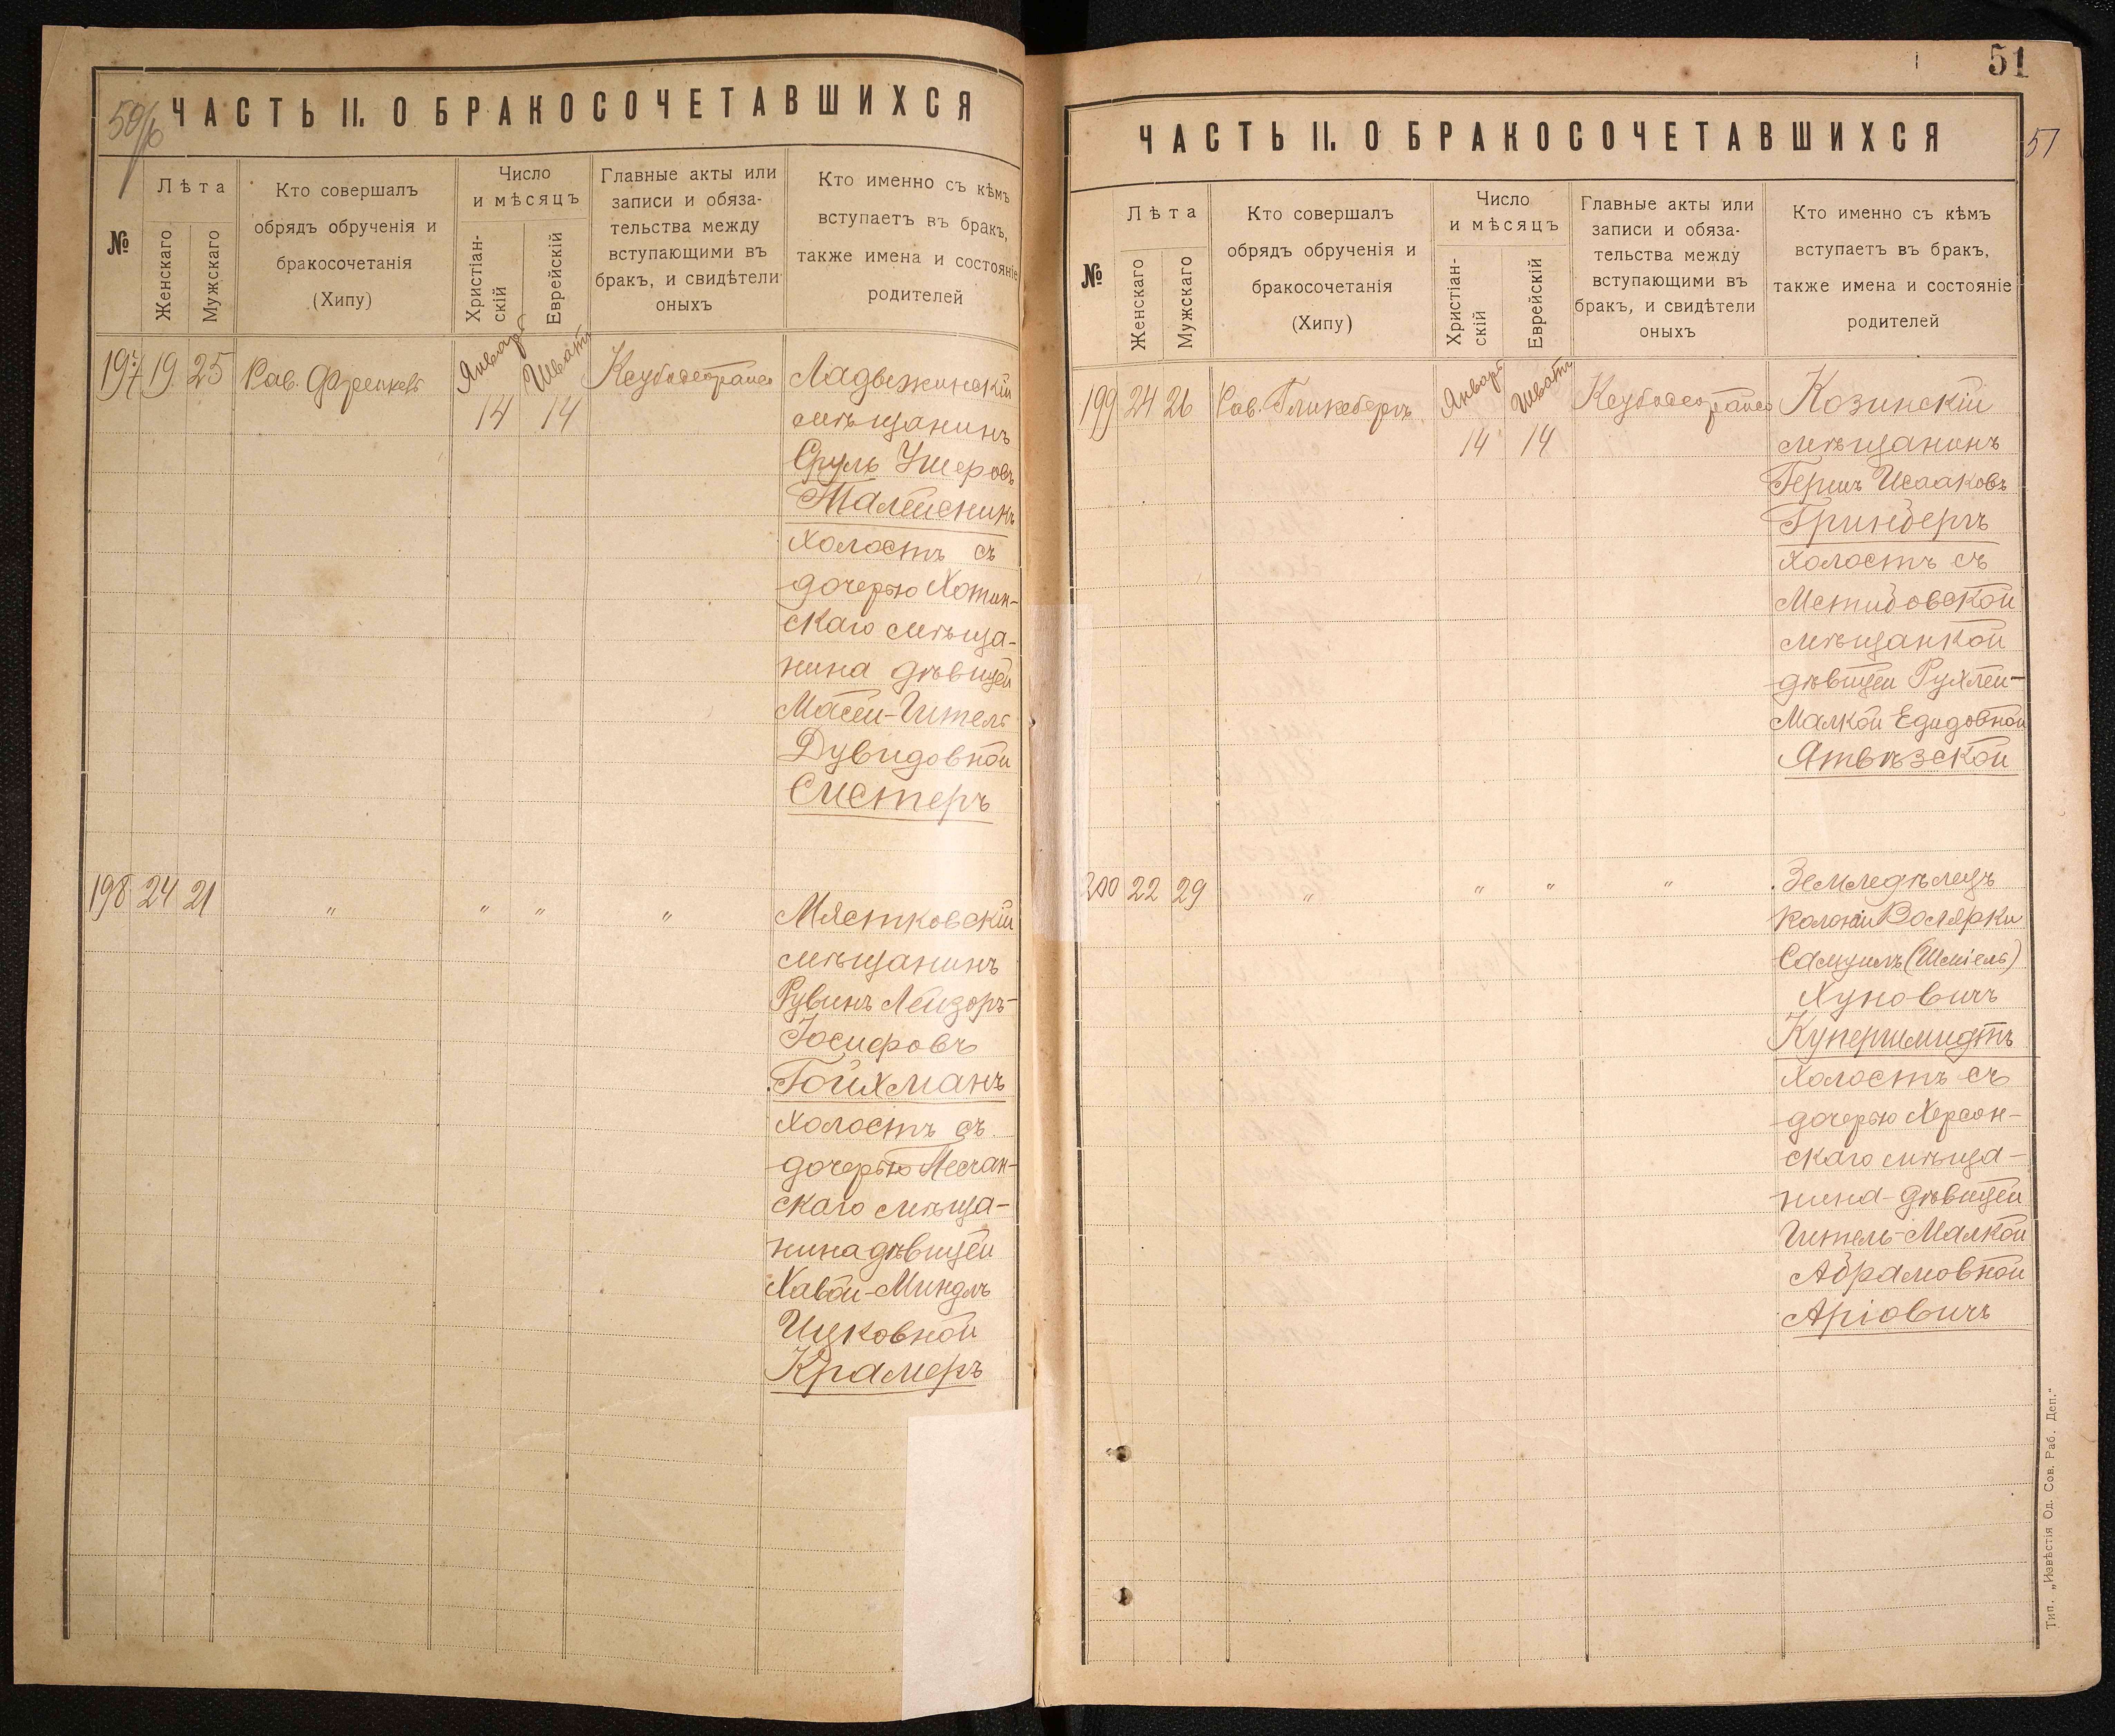 50/б
ЧАСТЬ II. О БРАКОСОЧЕТАВШИХСЯ
№
Лѣта
Женскаго
Мужскаго
Кто совершалъ
обрядъ обрученія и
бракосочетанія
(Хипу)
Число
и мѣсяцъ
Христіан-
скій
Еврейскій
Главные акты или
записи и обяза-
тельства между
вступающими въ
бракъ, и свидѣтели
оныхъ
Кто именно съ кѣмъ
вступаетъ въ бракъ,
также имена и состояніе
родителей
197 19 25 Рав. Френкель Январь 14 Шватъ 14 Ладыжинскій
мѣщанинъ
Сруль Ушеровъ
Талейсникъ
холостъ съ
дочерью Хотин-
скаго мѣща-
нина дѣвицей
Масей-Гитель
Дувидовной
Сместеръ
198 24 21 " " " " Мястковскій
мѣщанинъ
Рувинъ Лейзоръ-
Іосифовъ
Гойхманъ
холостъ съ
дочерью Песчан-
скаго мѣща-
нина дѣвицей
Хавой-Миндль
Ицковной
Крамеръ
51
51
ЧАСТЬ II. О БРАКОСОЧЕТАВШИХСЯ
№
Лѣта
Женскаго
Мужскаго
Кто совершалъ
обрядъ обрученія и
бракосочетанія
(Хипу)
Число
и мѣсяцъ
Христіан-
скій
Еврейскій
Главные акты или
записи и обяза-
тельства между
вступающими въ
бракъ, и свидѣтели
оныхъ
Кто именно съ кѣмъ
вступаетъ въ бракъ,
также имена и состояніе
родителей
199 24 26 Рав. Гликсбергъ Январь 14 Шватъ 14 Козинскій
мѣщанинъ
Гершъ Исааковъ
Гринбергъ
холостъ съ
Мстибовской
мѣщанкой
дѣвицей Рухлей-
Малкой Едидовной
Ятвѣзской
200 22 29 " " " " Земледѣлецъ
колоніи Восярки
Самуилъ (Шміель)
Хуновичъ
Купершмидтъ
холостъ съ
дочерью Херсон-
скаго мѣща-
нина-дѣвицей
Гитель-Малкой
Абрамовной
Аріовичъ
Тип. „Извѣстія Од. Сов. Раб. Деп."